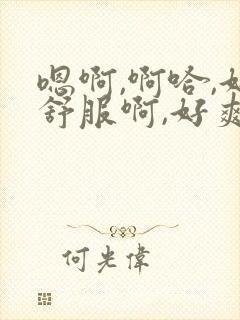 嗯啊,啊哈,好
舒服啊,好爽
何光伟